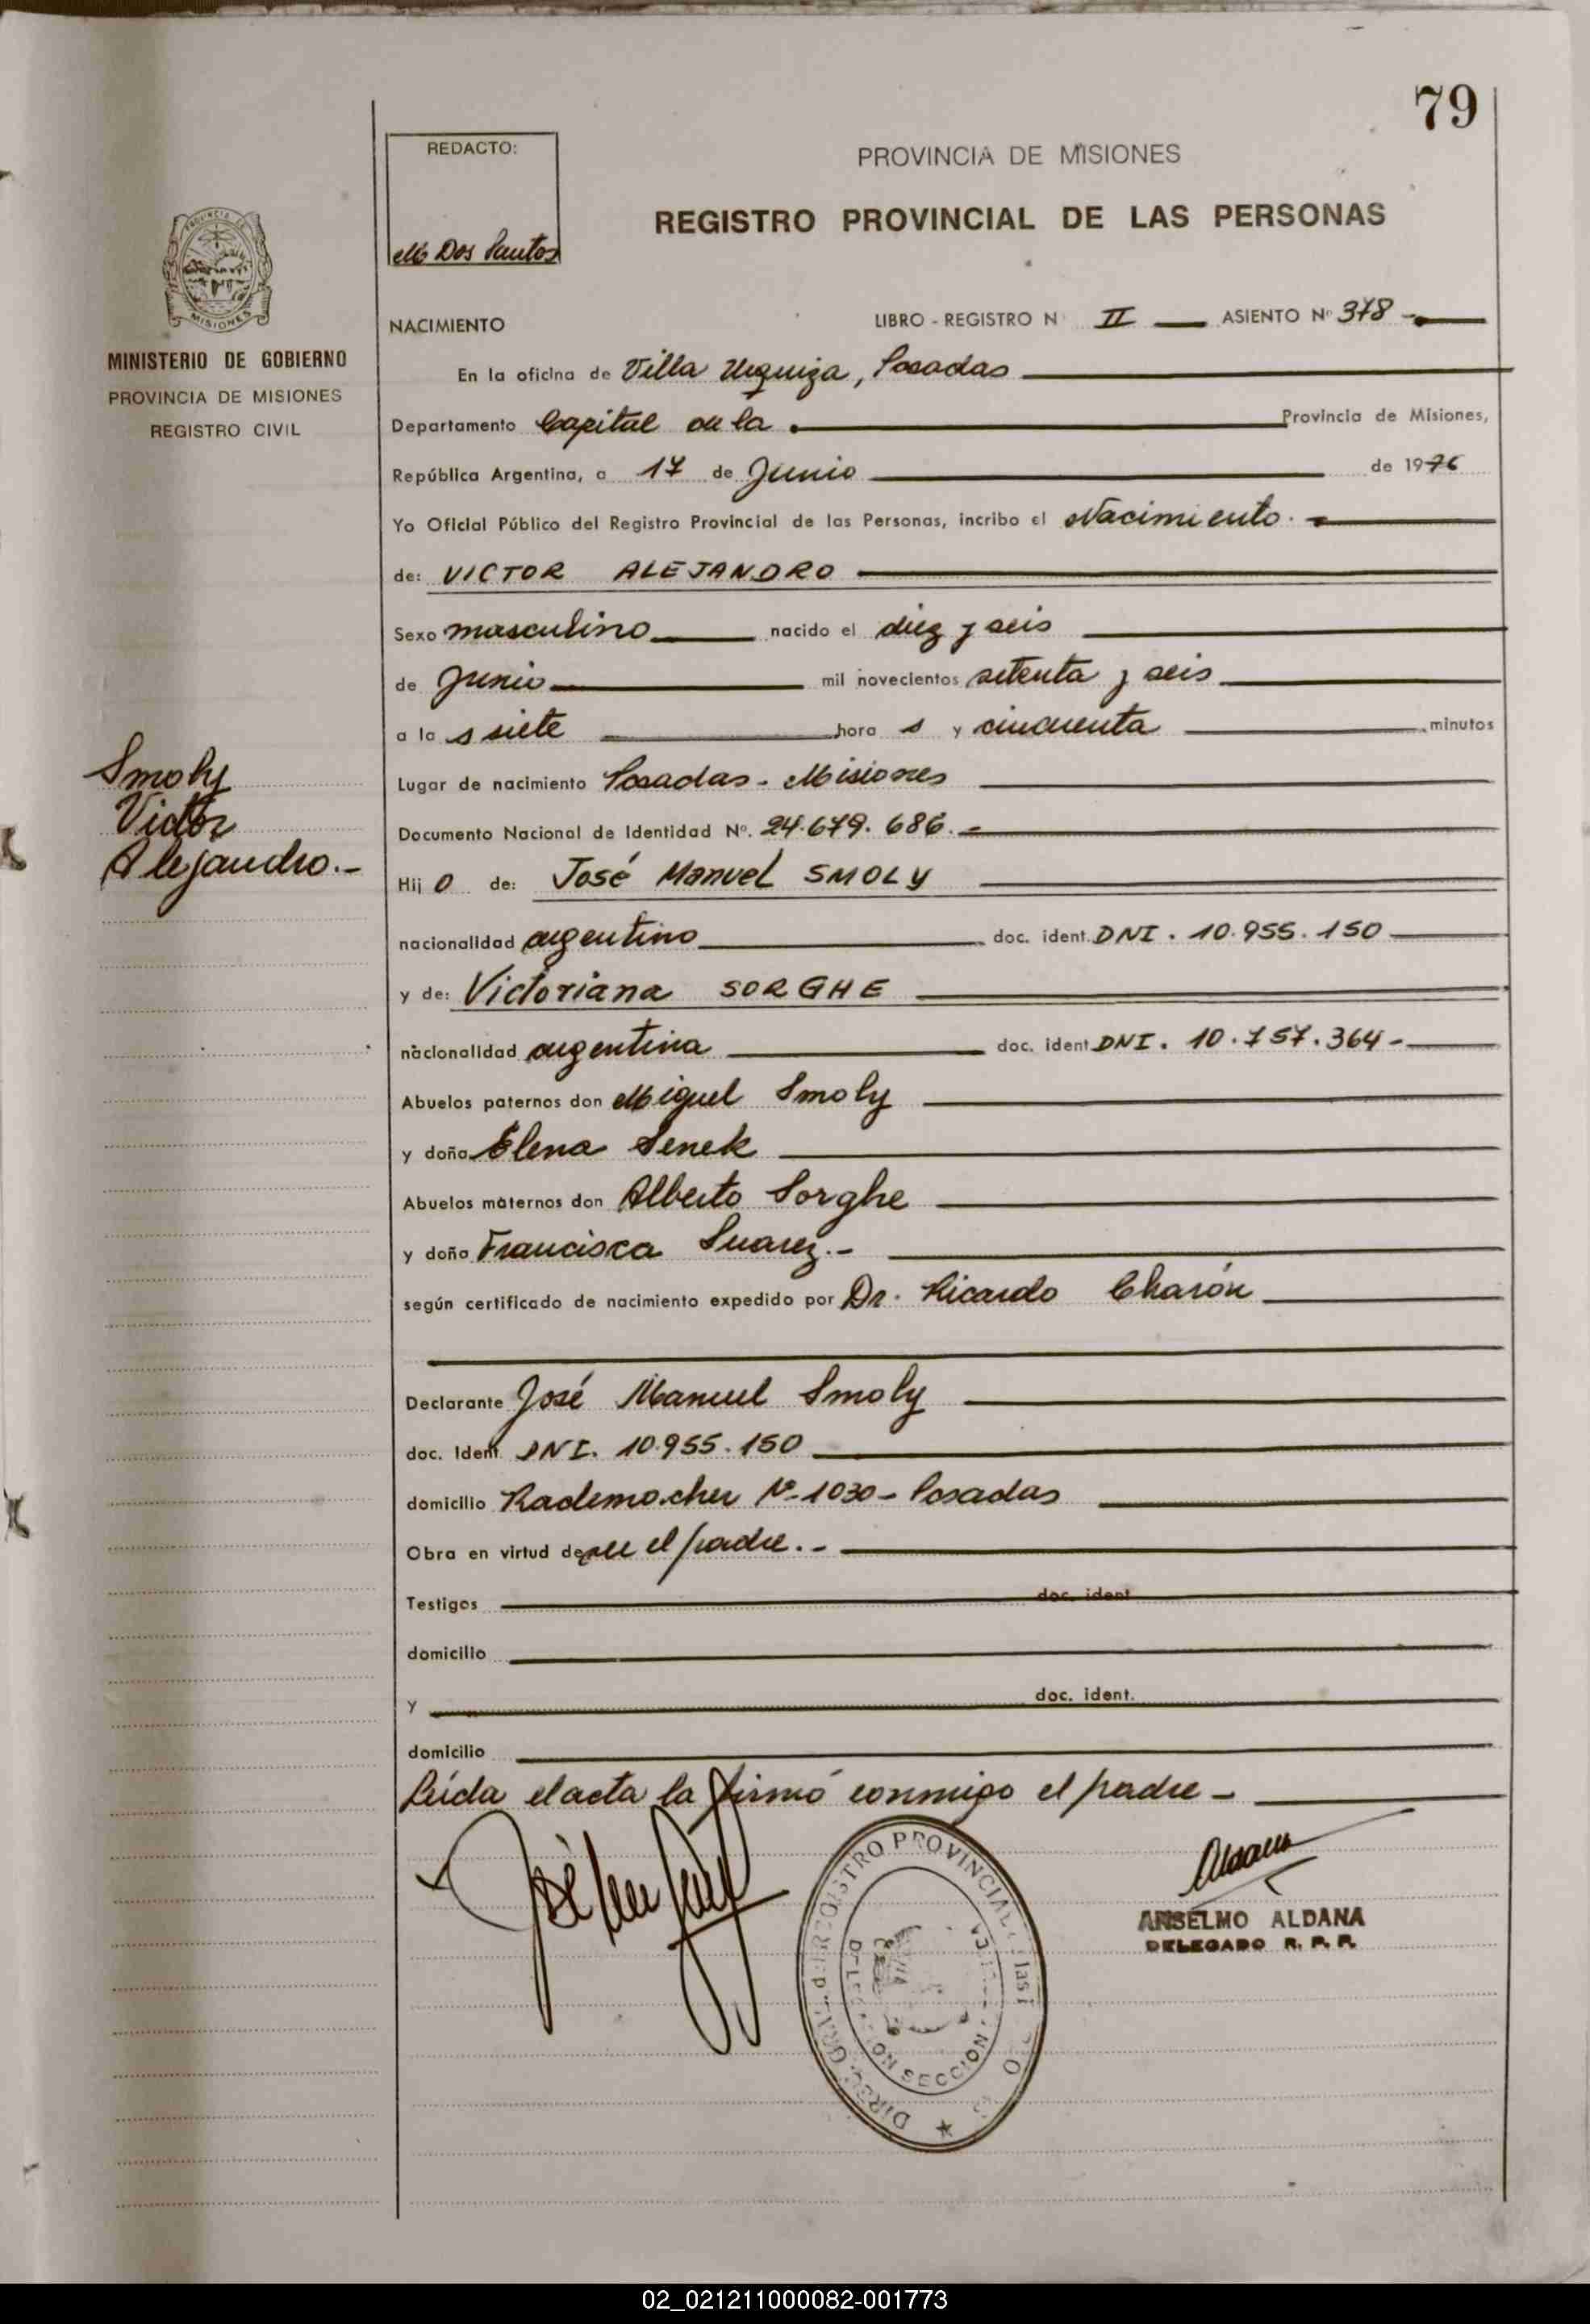 79
REDACTO:
M. Dos Santos
PROVINCIA DE MISIONES
REGISTRO PROVINCIAL DE LAS PERSONAS
PROVINCIA DE
MISIONES
MINISTERIO DE GOBIERNO
PROVINCIA DE MISIONES
REGISTRO CIVIL
NACIMIENTO
LIBRO - REGISTRO N II ASIENTO Nº 378 -
En la oficina de Villa Urquiza, Posadas
Departamento Capital de la Provincia de Misiones,
República Argentina, a 17 de Junio de 1976
Yo Oficial Público del Registro Provincial de las Personas, incribo el Nacimiento. -
de: VICTOR ALEJANDRO
Sexo masculino nacido el diez y seis
de Junio mil novecientos setenta y seis
a la s siete hora s y cincuenta minutos
Smoly
Victor
Alejandro.-
Lugar de nacimiento Posadas - Misiones
Documento Nacional de Identidad Nº. 24.679.686. -
Hij o de: José Manuel SMOLY
nacionalidad argentino doc. ident. DNI. 10.955.150
y de: Victoriana SORGHE
nacionalidad argentina doc. ident DNI. 10.757.364-
Abuelos paternos don Miguel Smoly
y doña Elena Senek
Abuelos maternos don Alberto Sorghe
y doña Francisca Suarez.-
según certificado de nacimiento expedido por Dr. Ricardo Charón
Declarante José Manuel Smoly
doc. Ident. DNI. 10.955.150
domicilio Rademacher Nº 1030 - Posadas
Obra en virtud de ser el padre. -
Testigos doc. ident
domicilio
y doc. ident.
domicilio
Leída el acta la firmó conmigo el padre -
ANSELMO ALDANA
DELEGADO R. P. P.
REGISTRO PROVINCIAL
SECCION
02_021211000082-001773